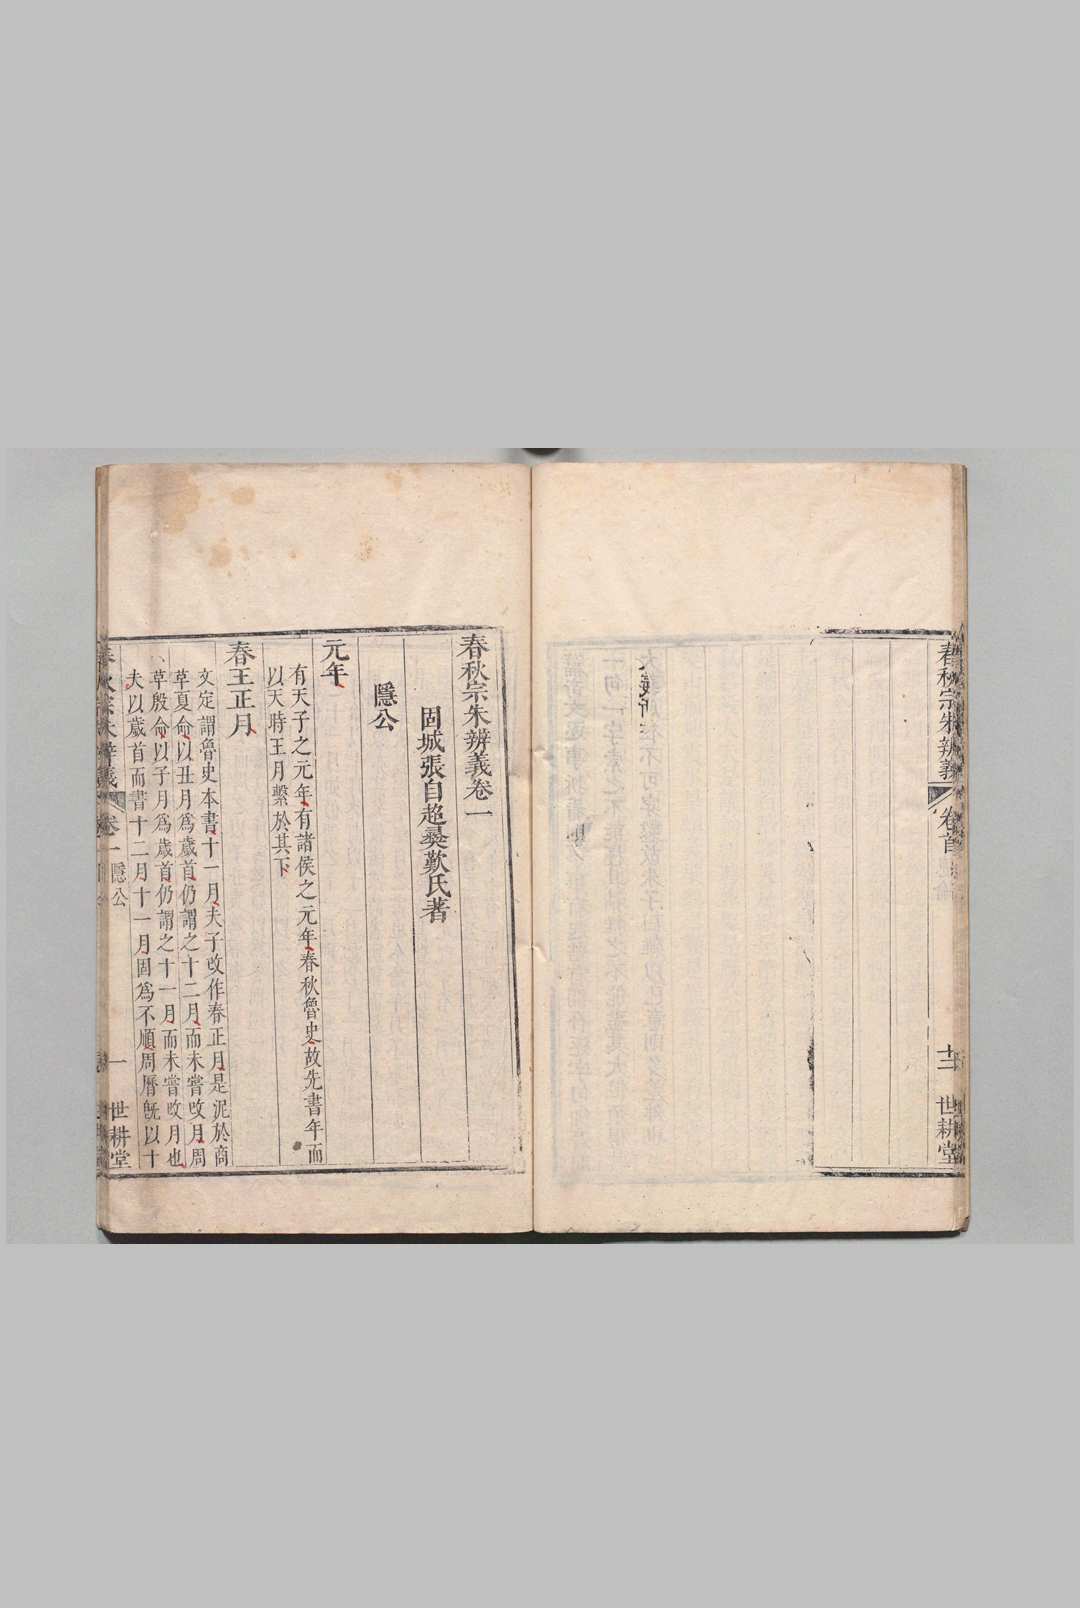 春秋宗朱辨義
卷首
十二
世耕堂
春秋宗朱辨義卷一
固城張自超彝歎氏著
隱公
元年
有天子之元年有諸侯之元年春秋魯史故先書年而
以天時王月繫於其下
春王正月
文定謂魯史本書十一月夫子改作春正月是泥於商
革夏命以丑月爲歲首仍謂之十二月而未嘗改月周
革殷命以子月爲歲首仍謂之十一月而未嘗改月也
夫以歲首而書十二月十一月固爲不順周曆旣以十
卷一
隱公
一
世耕堂